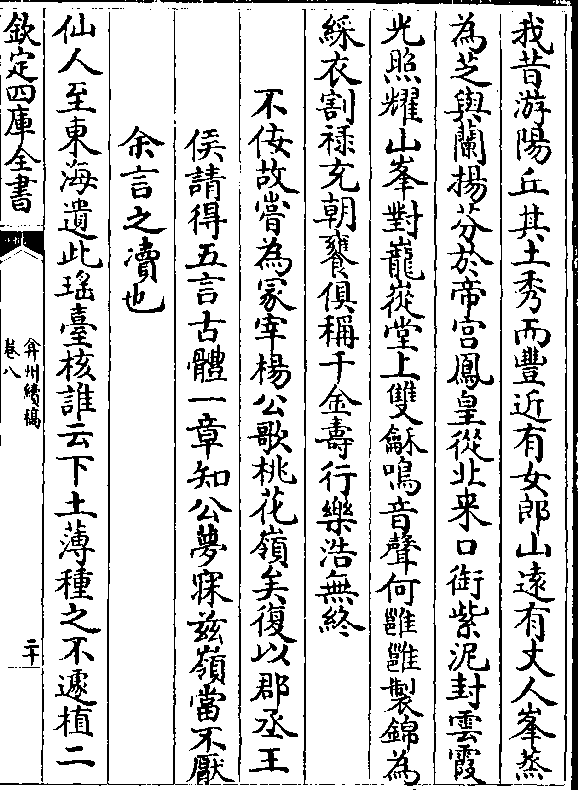 我昔游陽丘其土秀而豐近有女郎山遠有丈人峯蒸
為芝與蘭揚芬於帝宫鳳皇從北来口銜紫泥封雲霞
光照耀山峯對巃嵸堂上雙龢鳴音聲何雝雝製錦為
綵衣割禄充朝饔俱稱千金壽行樂浩無終
不佞故嘗為冡宰楊公歌桃花嶺矣復以郡丞王
侯請得五言古體一章知公夢寐兹嶺當不厭
余言之瀆也
仙人至東海遺此瑤臺核誰云下土薄種之不遽植二
欽定四庫全書
弇州續稿
卷八
二十